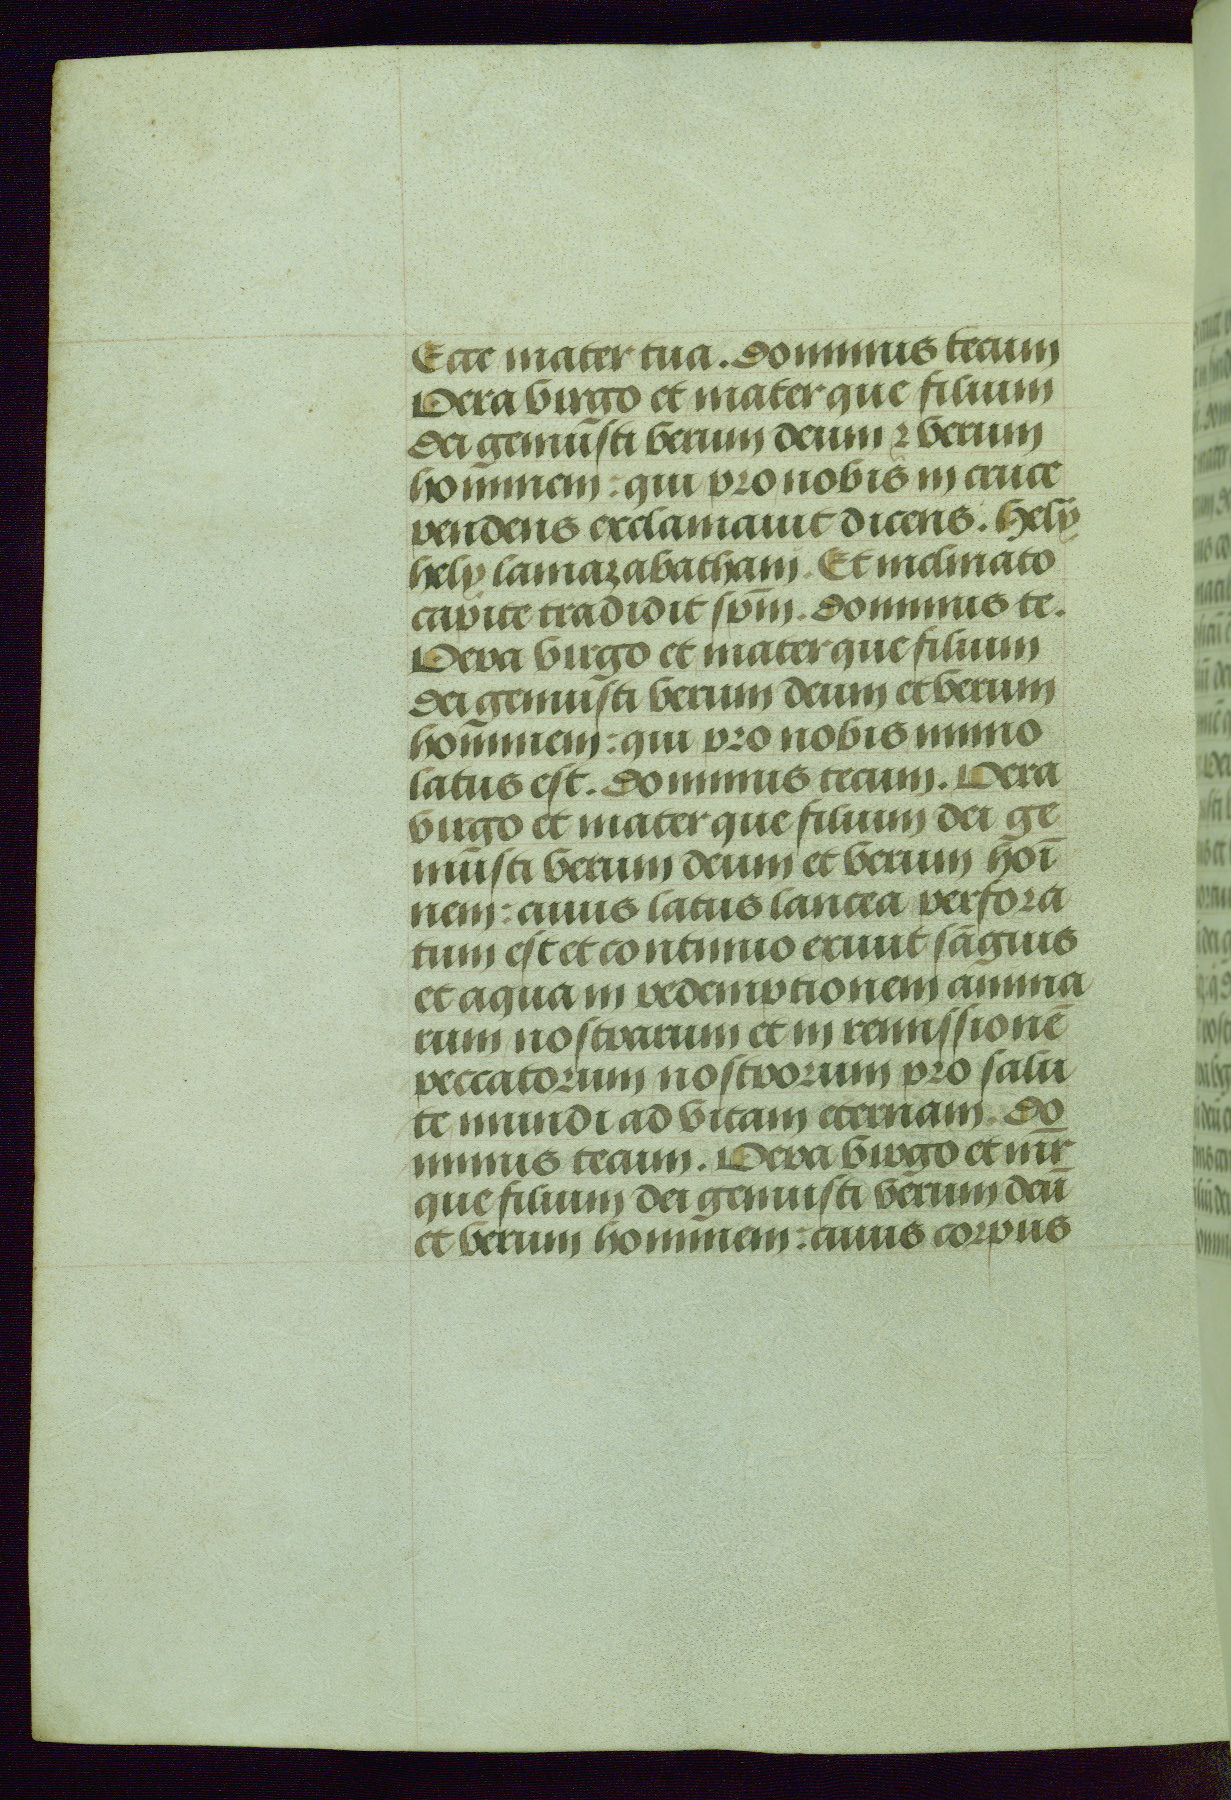 Ecce mater tua. Dominus tecum
Vera virgo et mater que filium
dei genuisti verum deum ⁊ verum
hominem: qui pro nobis in cruce
pendens exclamauit dicens. hely
hely lamazabathani. Et inclinato
capite tradidit sp̄m. Dominus te.
Vera virgo et mater que filium
dei genuisti verum deum et verum
hominem: qui pro nobis immo
latus est. Dominus tecum. Vera
virgo et mater que filium dei ge
nuisti verum deum et verum hoī
nem: cuius latus lancea perfora
tum est et continuo exiuit sāguis
et aqua in redemptionem anima
rum nostrarum et in remissionē
peccatorum nostrorum pro salu
te mundi ad vitam eternam. Do
minus tecum. Vera virgo et mr̄
que filium dei genuisti verum deū
et verum hominem: cuius corpus